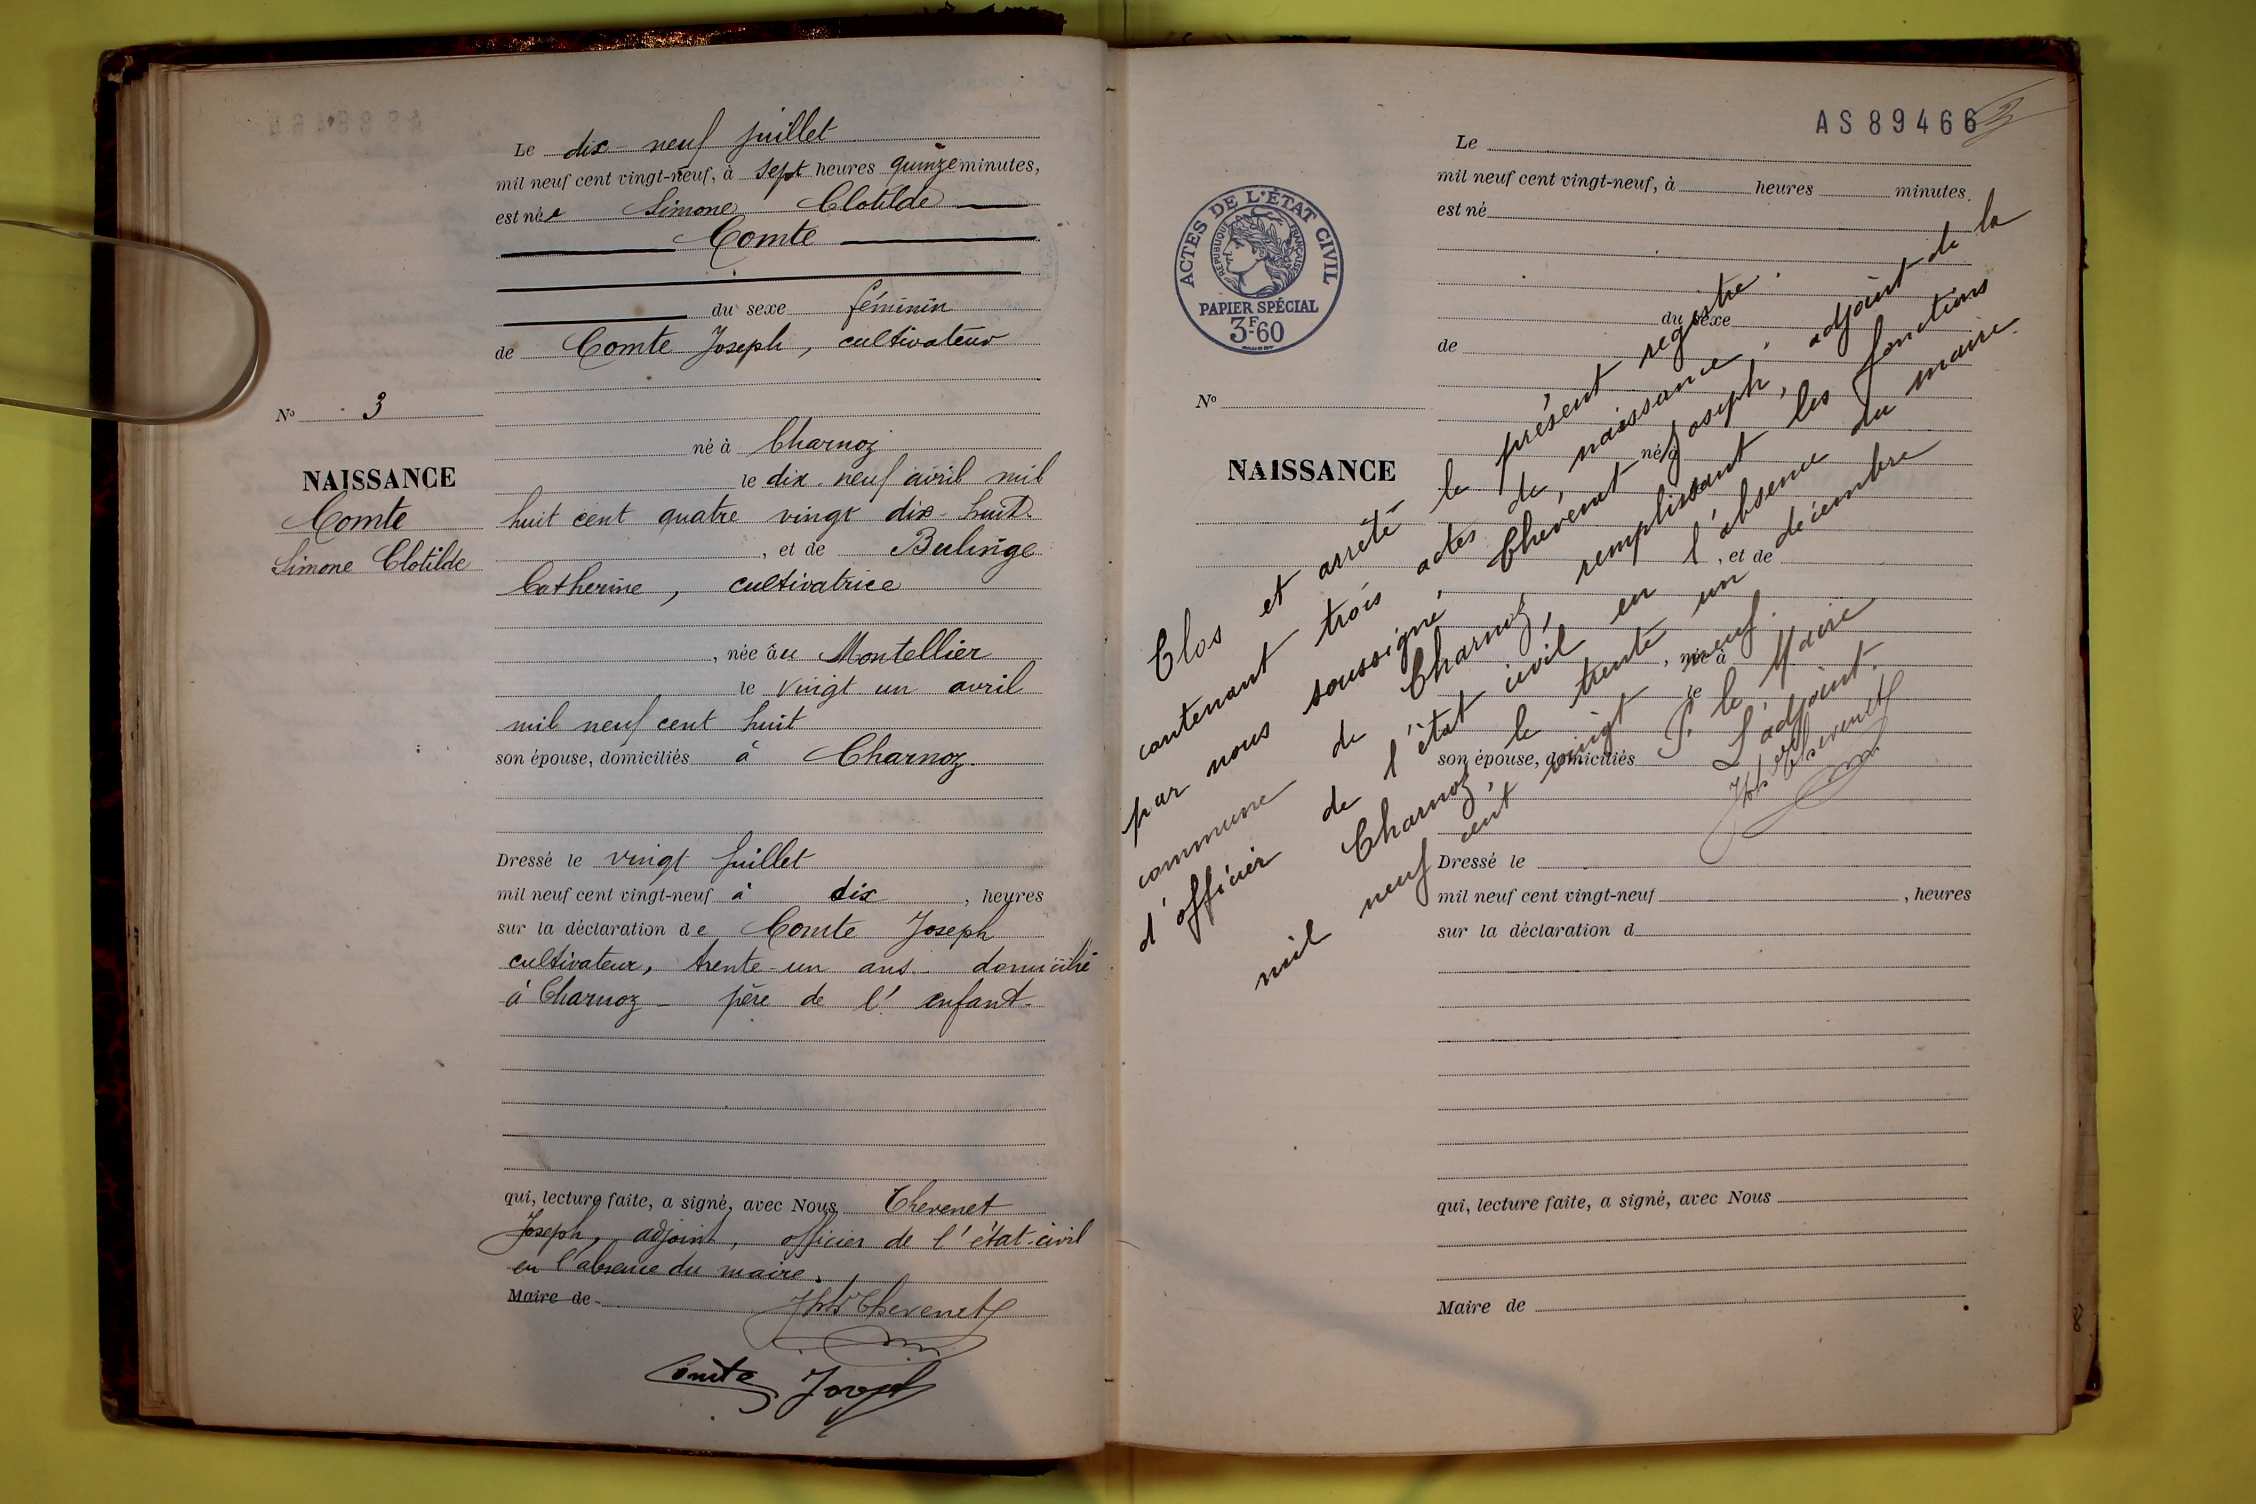 Le dix-neuf juillet
mil neuf cent vingt-neuf, à sept heures quinze minutes,
est née Simone Clotilde
Comte
du sexe féminin
de Comte Joseph, cultivateur
N° 3
né à Charnoz
NAISSANCE
le dix-neuf avril mil
Comte
huit cent quatre vingt dix-huit.
Simone Clotilde
, et de Bulinge
Catherine, cultivatrice
, née au Montellier
le vingt un avril
mil neuf cent huit
son épouse, domiciliés à Charnoz.
Dressé le vingt juillet
mil neuf cent vingt-neuf à dix, heures
sur la déclaration de Comte Joseph
cultivateur, trente-un ans - domicilié
à Charnoz - père de l'enfant.
qui, lecture faite, a signé, avec Nous Thevenet
Joseph, adjoint, officier de l'état-civil
en l'absence du maire.
Maire de
Jph Thevenet
Comte Joseph
AS 89466
3
ACTES DE L'ÉTAT CIVIL
RÉPUBLIQUE FRANÇAISE
PAPIER SPÉCIAL
3F.60
Le
mil neuf cent vingt-neuf, à heures minutes.
est né
du sexe
de
N°
né à
NAISSANCE
, et de
, née à
le
son épouse, domiciliés
Dressé le
mil neuf cent vingt-neuf , heures
sur la déclaration d
qui, lecture faite, a signé, avec Nous
Maire de
Clos et arrêté le présent registre
contenant trois actes de naissance.
par nous soussigné Thevenet Joseph, adjoint de la
commune de Charnoz, remplissant les fonctions
d'officier de l'état civil en l'absence du maire.
Charnoz, le trente un décembre
mil neuf cent vingt neuf.
Pr le Maire
L'adjoint.
Jph Thevenet